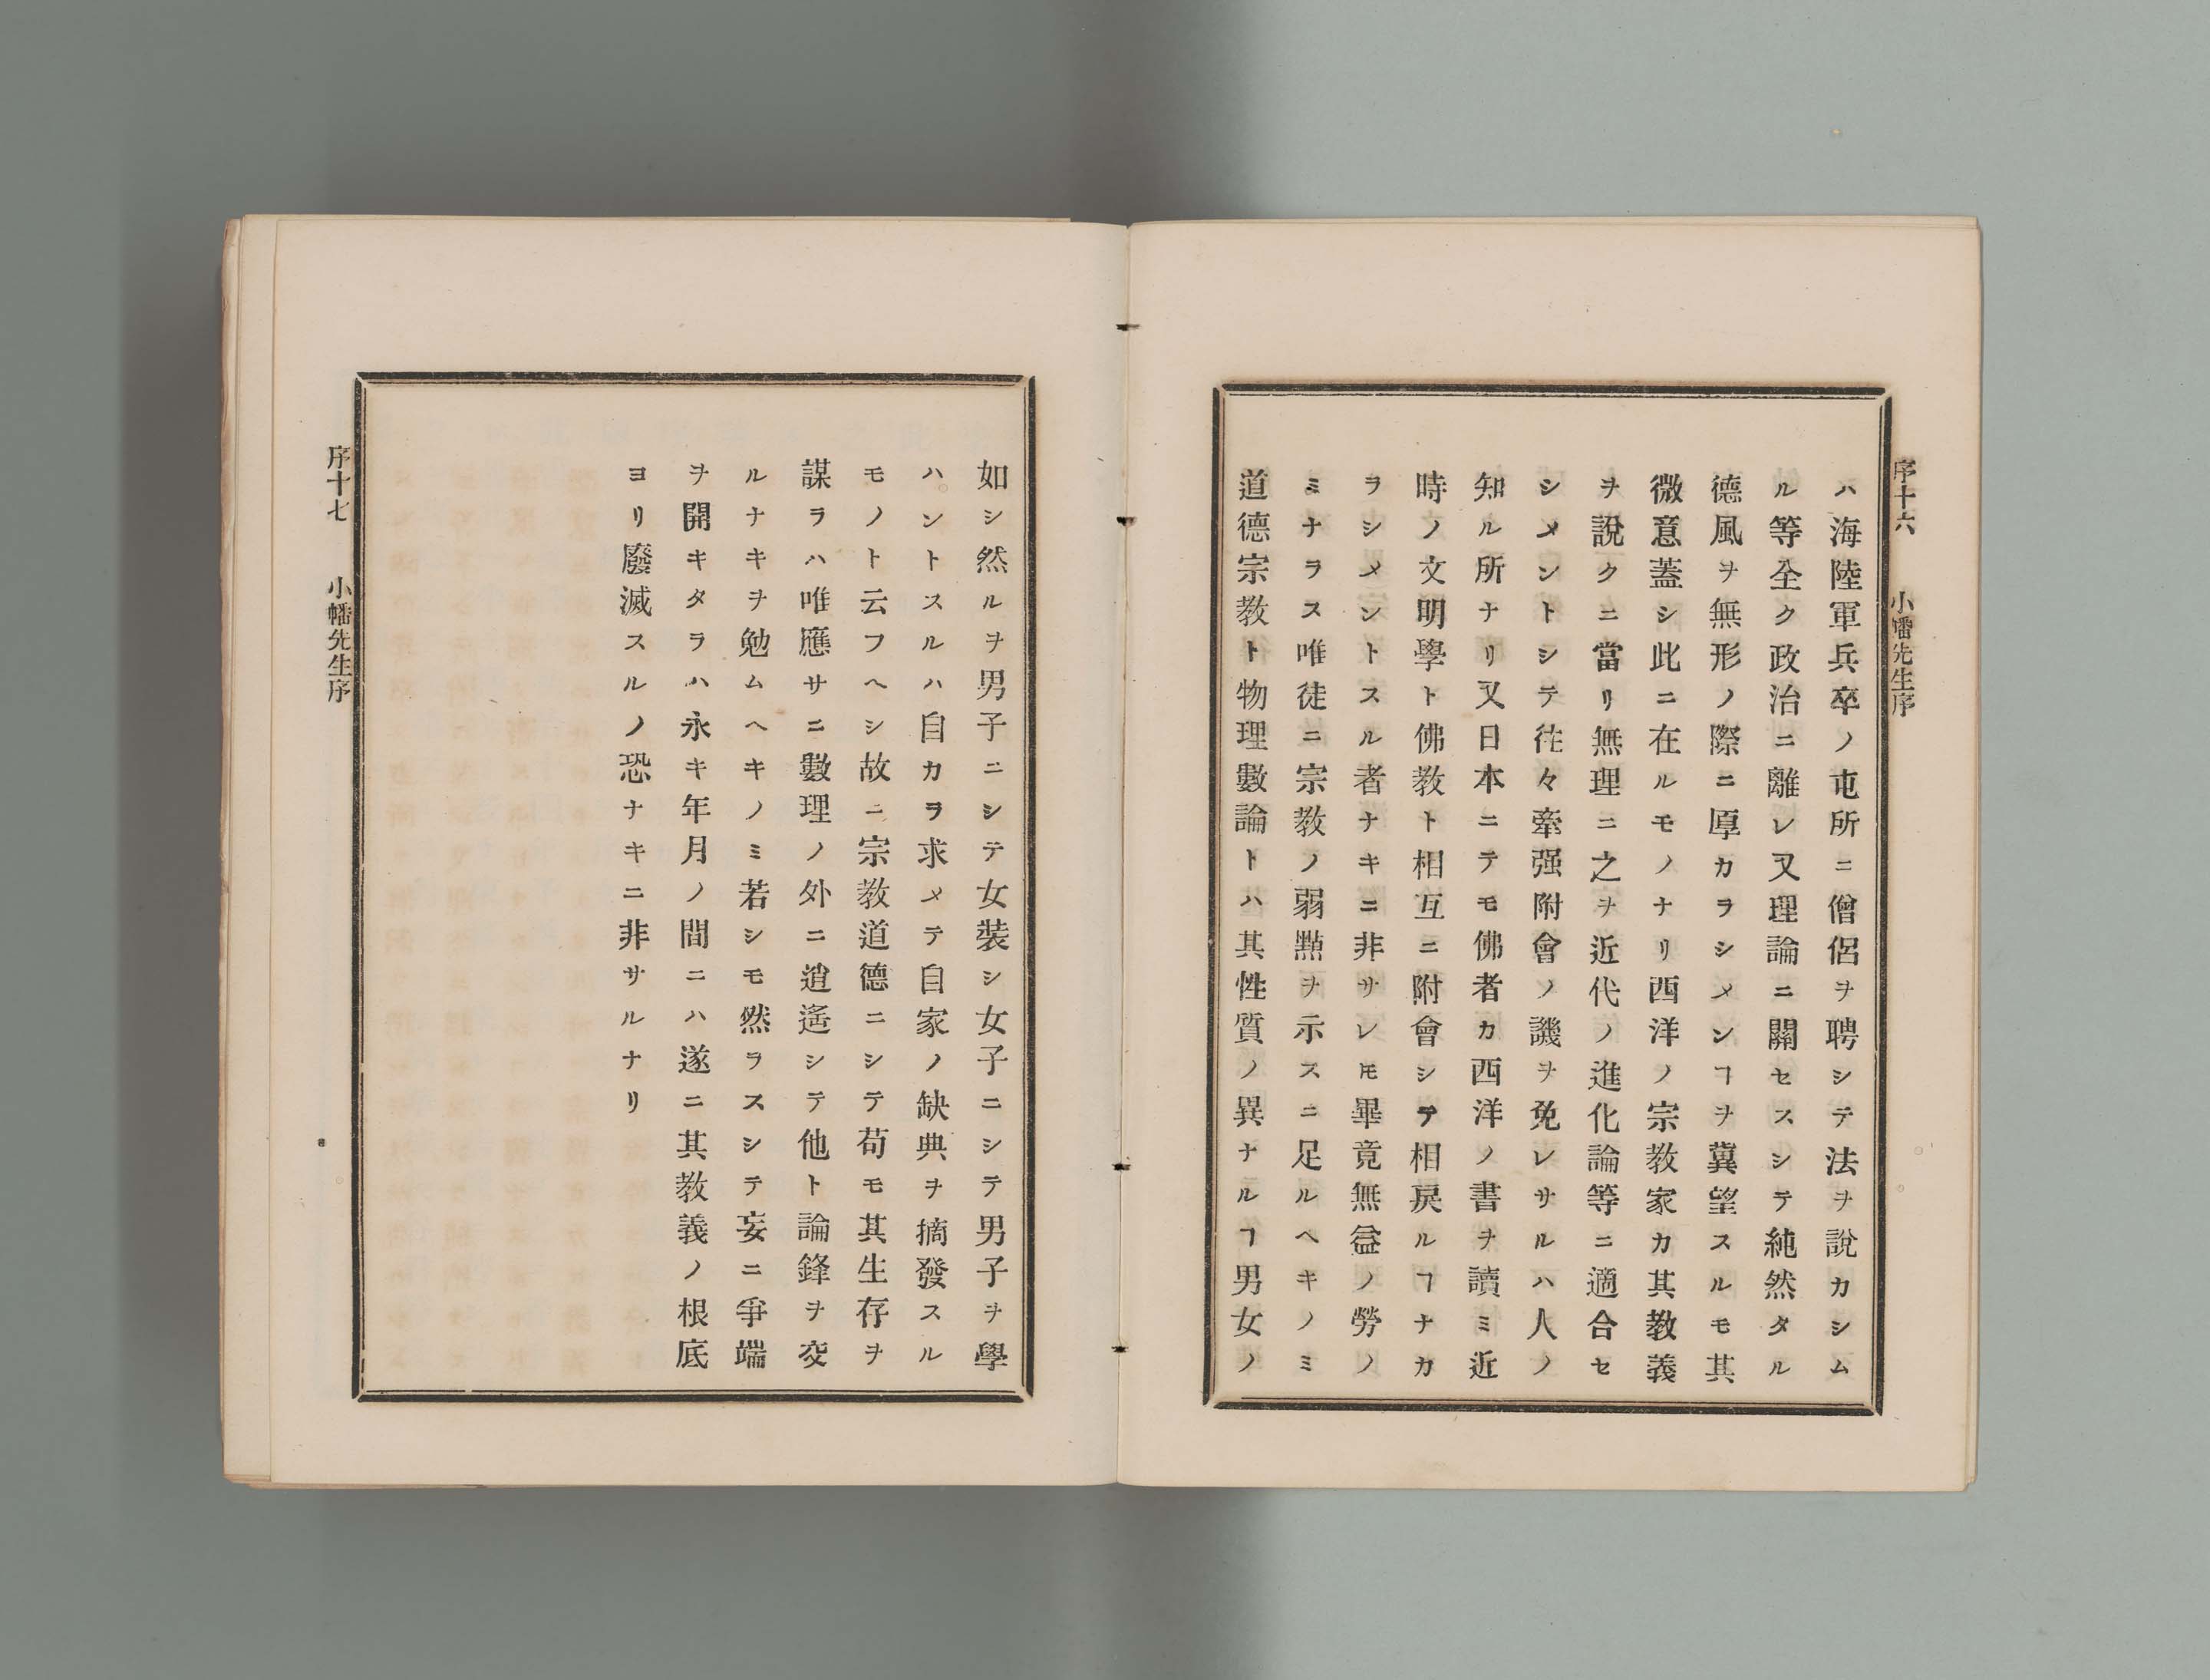 序十六 小幡先生序
ハ海陸軍兵卒ノ屯所ニ僧侶ヲ聘シテ法ヲ說カシム
ル等全ク政治ニ離レ又理論ニ關セスシテ純然タル
德風ヲ無形ノ際ニ厚カラシメンヿヲ冀望スルモ其
微意蓋シ此ニ在ルモノナリ西洋ノ宗敎家カ其敎義
ヲ說クニ當リ無理ニ之ヲ近代ノ進化論等ニ適合セ
シメントシテ徃々牽强附會ノ譏ヲ免レサルハ人ノ
知ル所ナリ又日本ニテモ佛者カ西洋ノ書ヲ讀ミ近
時ノ文明學ト佛敎ト相互ニ附會シテ相戾ルヿナカ
ラシメントスル者ナキニ非サレ𪜈畢竟無益ノ勞ノ
ミナラス唯徒ニ宗敎ノ弱㸃ヲ示スニ足ルヘキノミ
道德宗敎ト物理數論トハ其性質ノ異ナルヿ男女ノ
如シ然ルヲ男子ニシテ女裝シ女子ニシテ男子ヲ學
ハントスルハ自カラ求メテ自家ノ缺典ヲ摘發スル
モノト云フヘシ故ニ宗敎道德ニシテ苟モ其生存ヲ
謀ラハ唯應サニ數理ノ外ニ逍遙シテ他ト論鋒ヲ交
ルナキヲ勉ムヘキノミ若シモ然ラスシテ妄ニ爭端
ヲ開キタラハ永キ年月ノ間ニハ遂ニ其敎義ノ根底
ヨリ廢滅スルノ恐ナキニ非サルナリ
序十七 小幡先生序